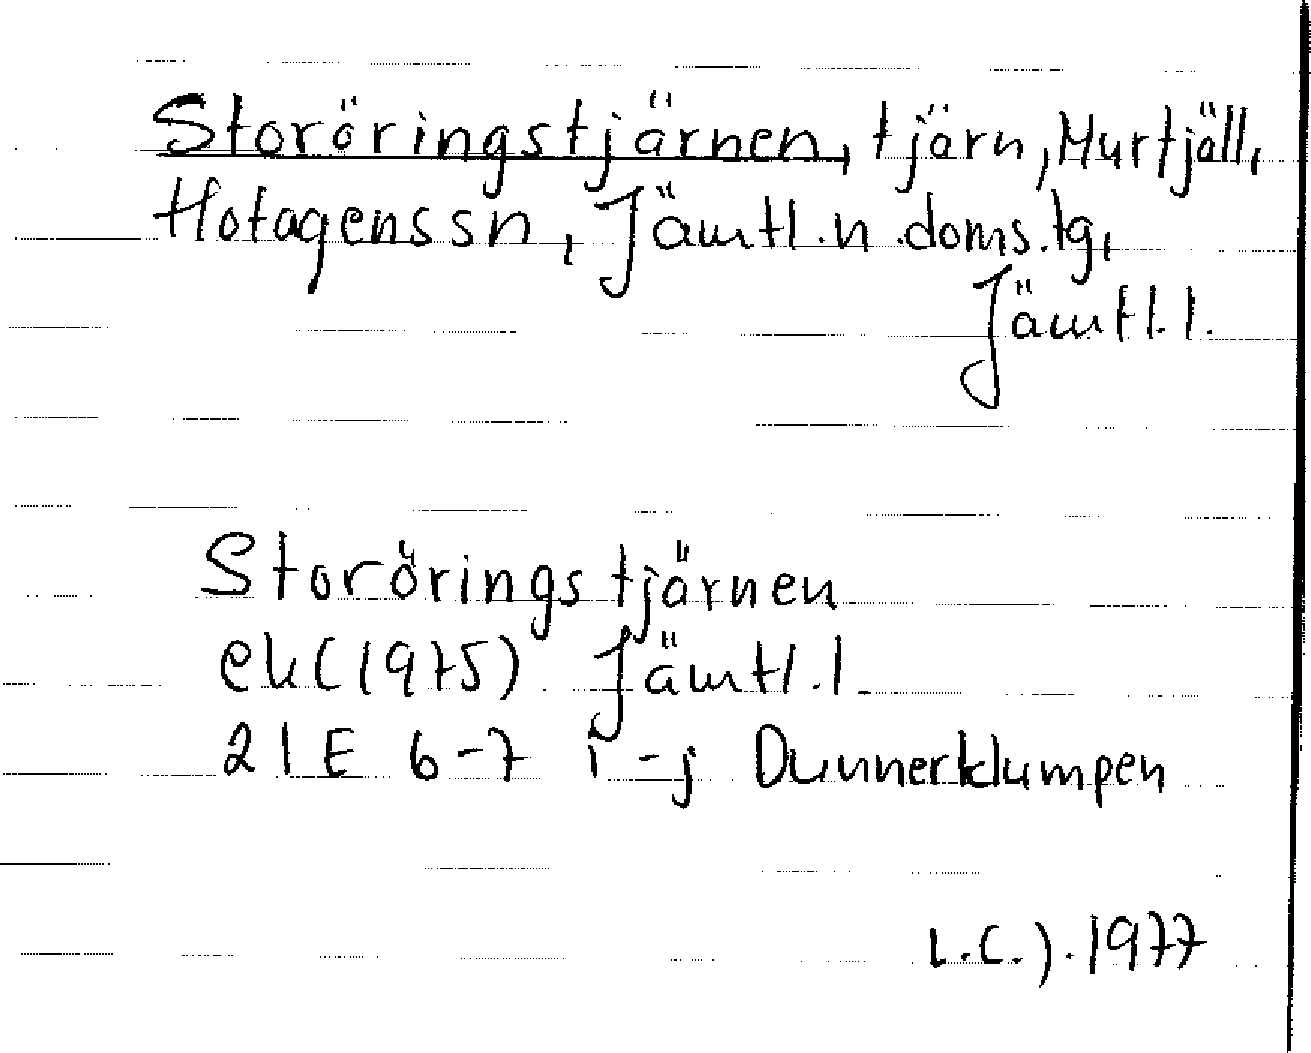 Storöringstjärnen, tjärn, Murfjäll,
Hotagens sn, Jämtl. n. doms. tg,
Jämtl. l.
Storöringstjärnen
ek (1975) Jämtl. l.
21E 6-7 i-j Dunnerklumpen
L.C.J. 1977